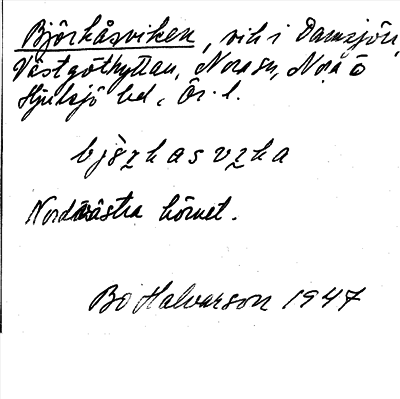 Björkåsviken, vik i Damsjön,
Västgöthyttan, Nora sn, Nora o
Hjulsjö bd, Ör. l.
Nordvästra hörnet.
Bo Halvarson 1947